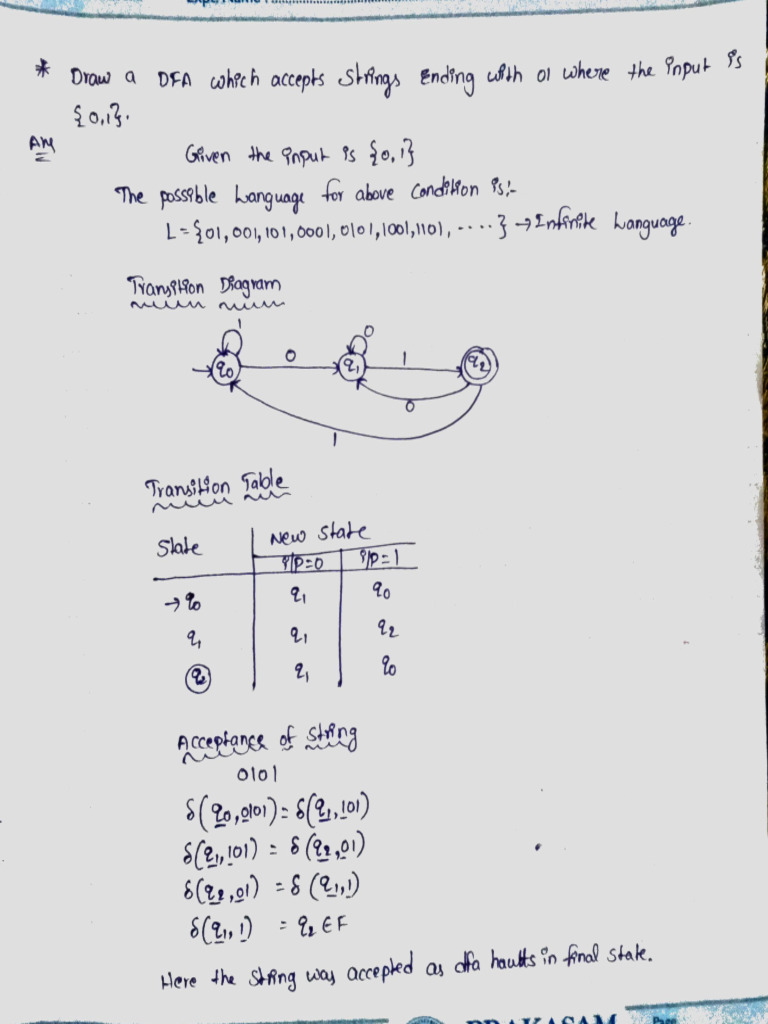 * Draw a DFA which accepts Strings Ending with 01 where the input is
{0,1}.
Ans
Given the input is {0,1}
The possible Language for above Condition is:-
L = {01, 001, 101, 0001, 0101, 1001, 1101, ....} → Infinite Language.
Transition Diagram
1 0
q0 0 q1 1 q2
0
1
Transition Table
State New State
i/p=0 i/p=1
→ q0 q1 q0
q1 q1 q2
q2 q1 q0
Acceptance of String
0101
δ(q0, 0101) = δ(q1, 101)
δ(q1, 101) = δ(q2, 01)
δ(q2, 01) = δ(q1, 1)
δ(q1, 1) = q2 ∈ F
Here the String was accepted as dfa haults in final state.
PRAKASAM